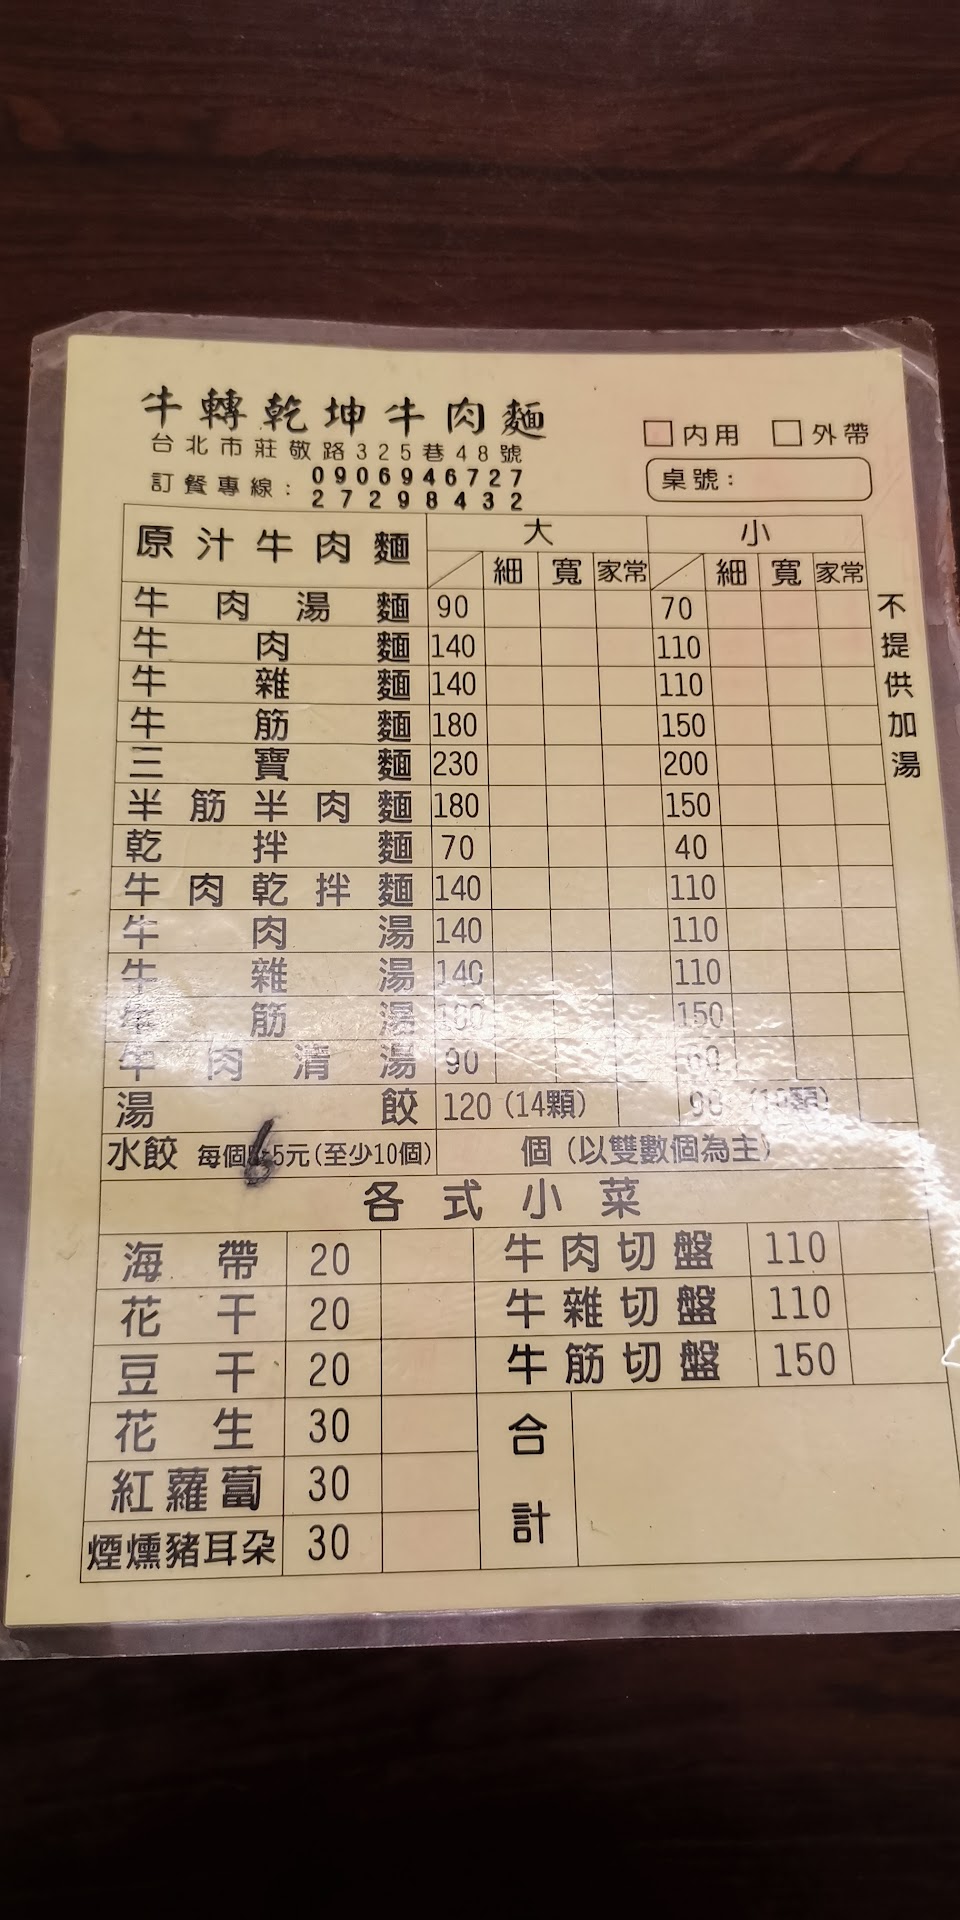 牛轉乾坤牛肉麵
台北市莊敬路325巷48號
訂餐專線:0906946727
27298432
內用 外帶
桌號:
原汁牛肉麵 大 小
細 寬 家常 細 寬 家常
不提供加湯
牛肉湯麵 90 70
牛肉麵 140 110
牛雜麵 140 110
牛筋麵 180 150
三寶麵 230 200
半筋半肉麵 180 150
乾拌麵 70 40
牛肉乾拌麵 140 110
牛肉湯 140 110
牛雜湯 140 110
牛筋湯 180 150
牛肉清湯 90 60
湯餃 120(14顆) 90(10顆)
水餃 每個6 5元(至少10個) 個(以雙數個為主)
各式小菜
海帶 20 牛肉切盤 110
花干 20 牛雜切盤 110
豆干 20 牛筋切盤 150
花生 30 合計
紅蘿蔔 30
煙燻豬耳朵 30